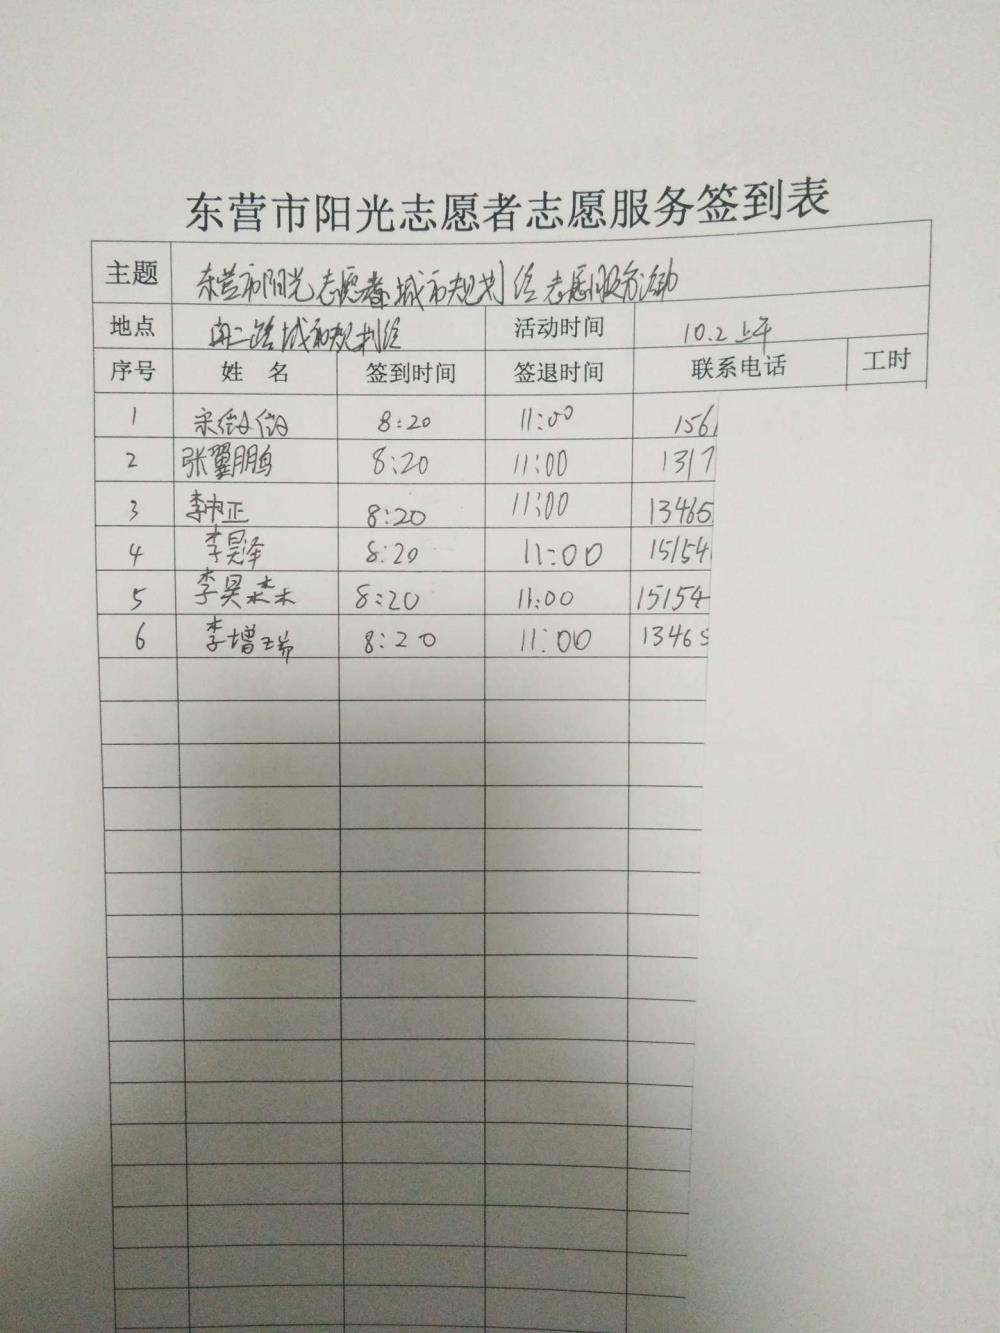 东营市阳光志愿者志愿服务签到表
主题 东营市阳光志愿者城市规划馆志愿服务活动
地点 南二路城市规划馆 活动时间 10.2上午
序号 姓 名 签到时间 签退时间 联系电话 工时
1 宋 8:20 11:00 1561
2 张翼鹏 8:20 11:00 1317
3 李中正 8:20 11:00 13465
4 李昊泽 8:20 11:00 15154
5 李昊森 8:20 11:00 15154
6 李增瑞 8:20 11:00 13465